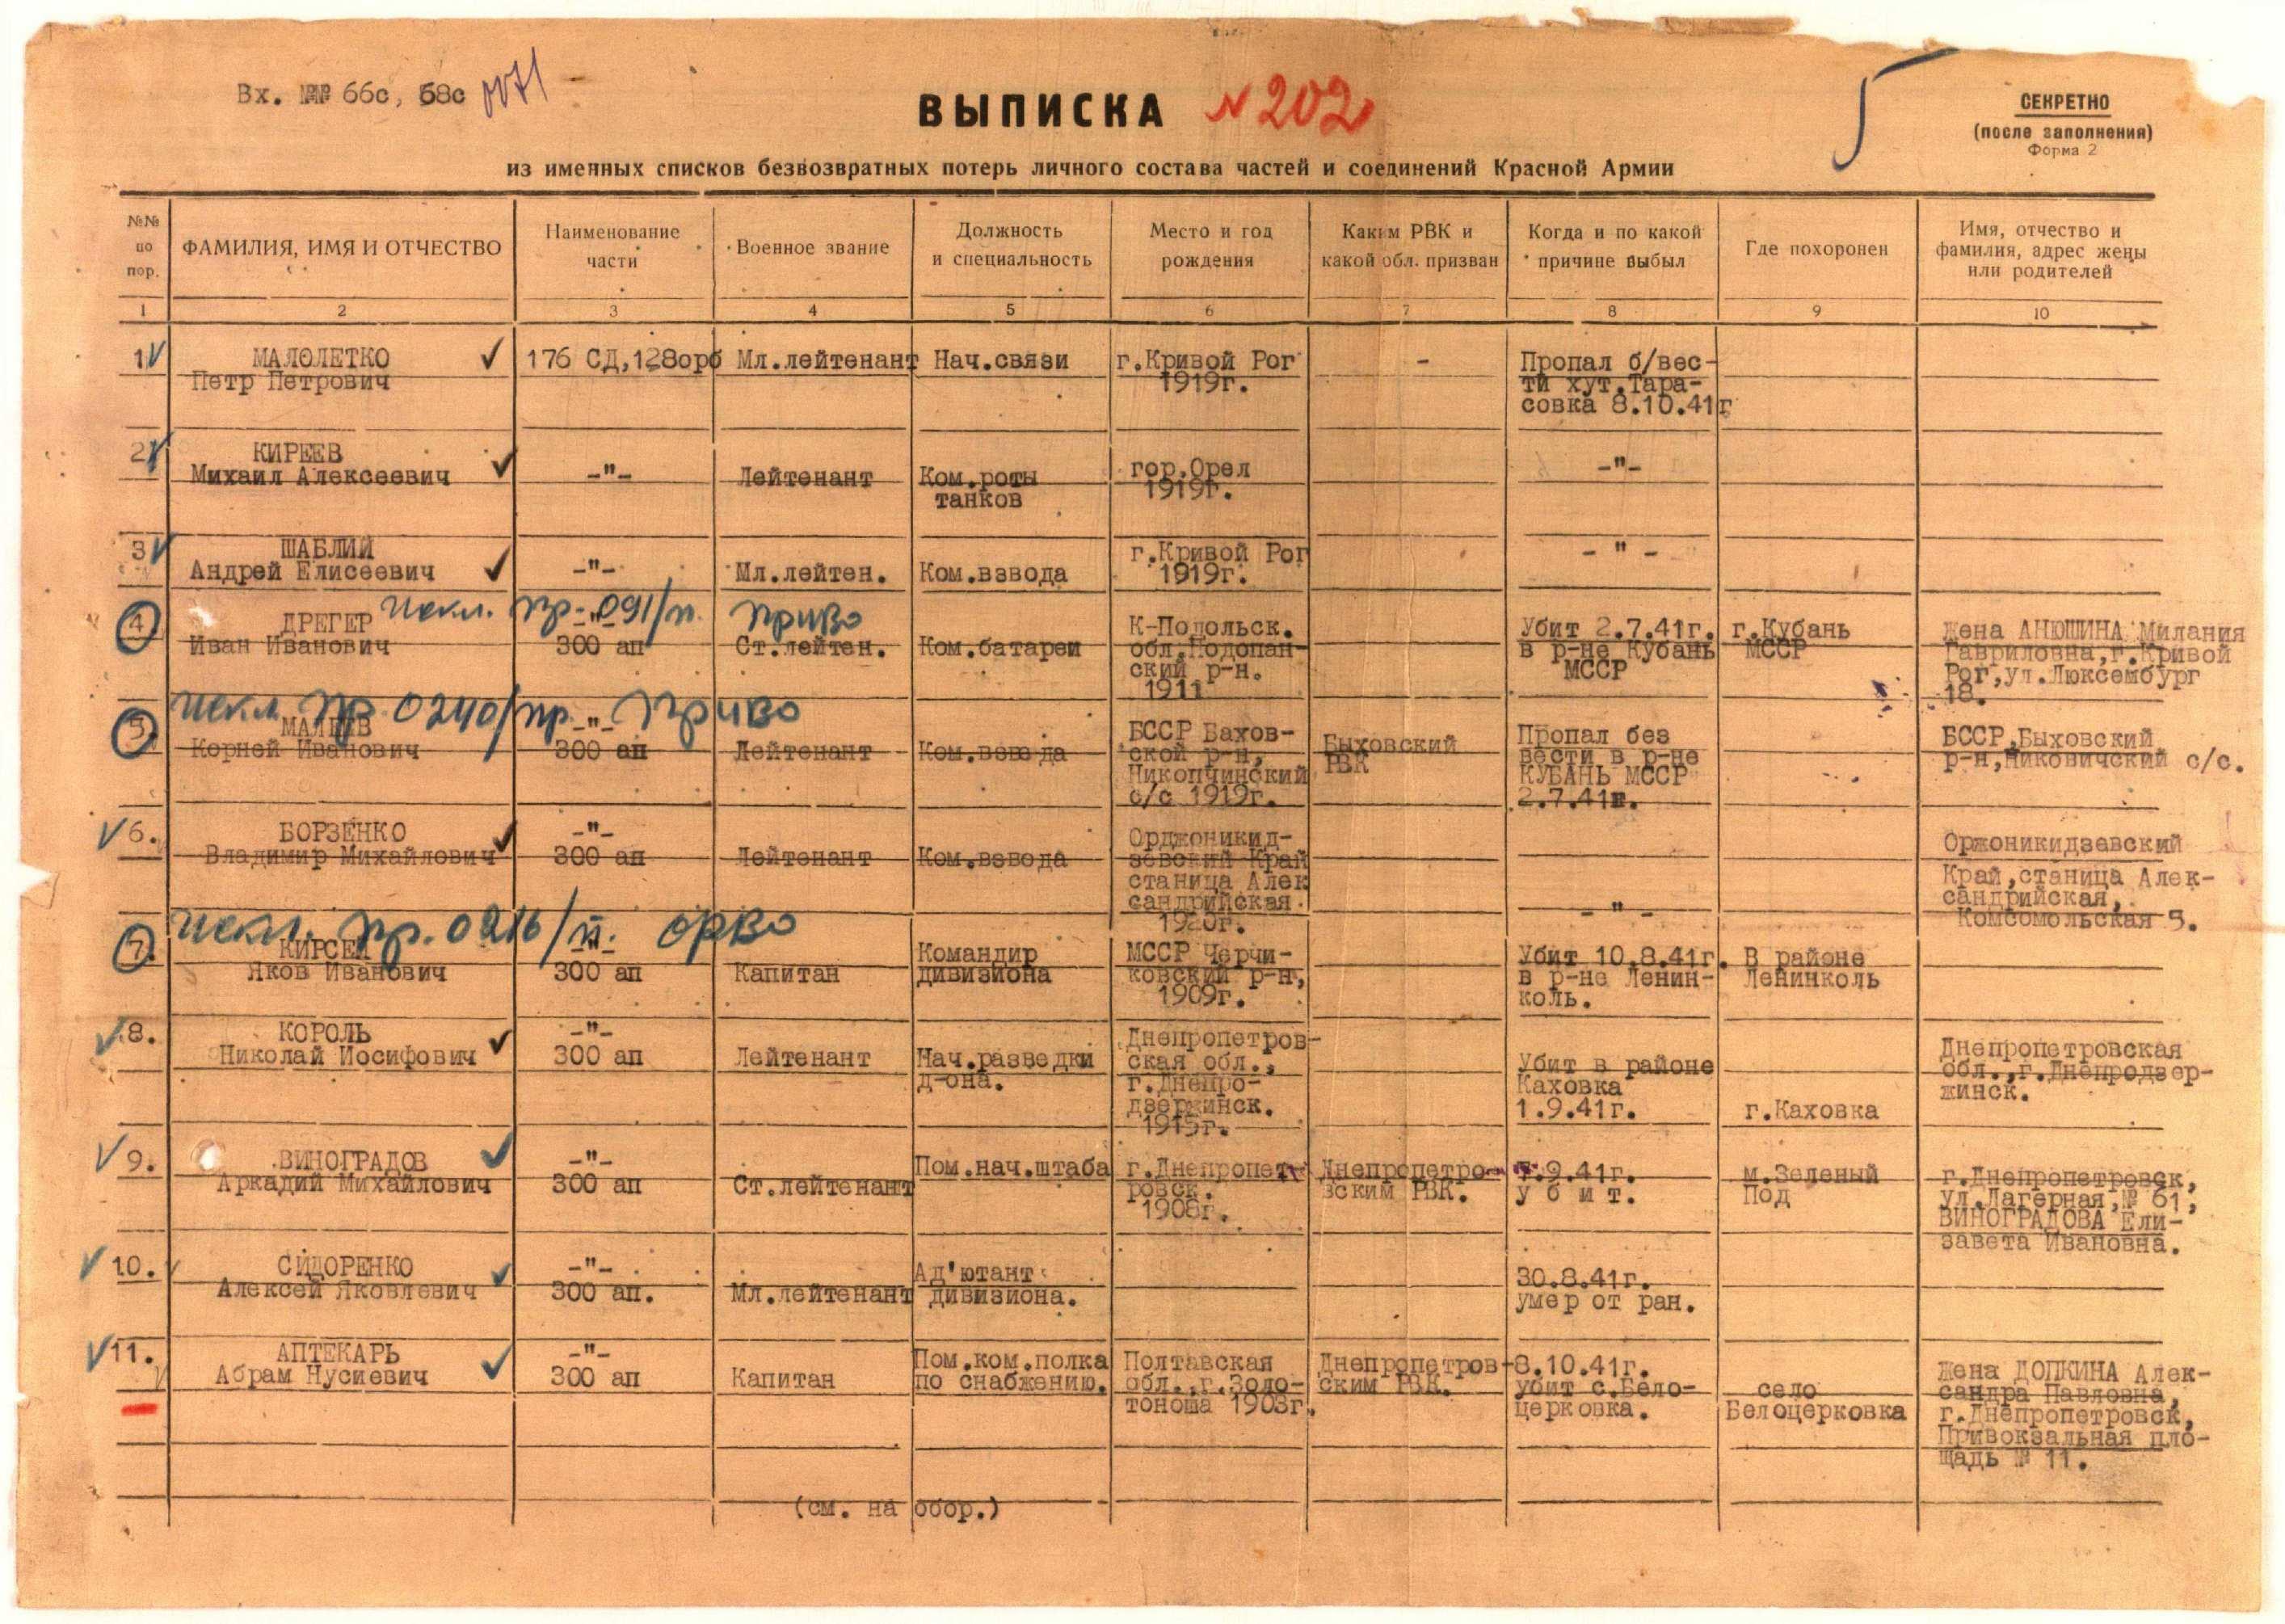 Вх. №№ 66с, 68с 0071
ВЫПИСКА N 202
СЕКРЕТНО
(после заполнения)
Форма 2
из именных списков безвозвратных потерь личного состава частей и соединений Красной Армии
№№ по пор. ФАМИЛИЯ, ИМЯ И ОТЧЕСТВО Наименование части Военное звание Должность и специальность Место и год рождения Каким РВК и какой обл. призван Когда и по какой причине выбыл Где похоронен Имя, отчество и фамилия, адрес жены или родителей
1 2 3 4 5 6 7 8 9 10
1 МАЛОЛЕТКО 176 СД,128орб Мл.лейтенант Нач.связи г.Кривой Рог - Пропал б/вес-
Петр Петрович 1919г. ти хут.Тара-
совка 8.10.41г
2 КИРЕЕВ
Михаил Алексеевич -"- Лейтенант Ком.роты гор.Орел -"-
танков 1919г.
3 ШАБЛИЙ г.Кривой Рог - " -
Андрей Елисеевич -"- Мл.лейтен. Ком.взвода 1919г.
4 ДРЕГЕР -"- К-Подольск. Убит 2.7.41г. г.Кубань жена АНЮШИНА Милания
Иван Иванович 300 ап Ст.лейтен. Ком.батареи обл.Кодопан- в р-не Кубань МССР Гавриловна,г.Кривой
ский р-н. МССР Рог,ул.Люксембург
1911 18.
искл. 0240/
5. -"- БССР Бахов- Быховский Пропал без БССР,Быховский
Корней Иванович 300 ап Лейтенант Ком.взвода ской р-н, РВК вести в р-не р-н,Никовичский с/с.
Никопчинский КУБАНЬ МССР
с/с 1919г. 2.7.41г.
6. БОРЗЕНКО -"- Орджоникид- Оржоникидзевский
Владимир Михайлович 300 ап Лейтенант Ком.взвода зевский Край Край,станица Алек-
станица Алек сандрийская,
сандрийская. - " - Комсомольская 5.
искл. пр. 0216/п. ОРВО
7. -"- Командир МССР Черчи- Убит 10.8.41г. В районе
Яков Иванович 300 ап Капитан дивизиона ковский р-н, в р-не Ленин- Ленинколь
1909г. коль.
8. КОРОЛЬ -"- Днепропетров- Днепропетровская
Николай Иосифович 300 ап Лейтенант Нач.разведки ская обл., Убит в районе обл.,г.Днепродзер-
д-она. г.Днепро- Каховка жинск.
дзержинск. 1.9.41г. г.Каховка
1915г.
9. ВИНОГРАДОВ -"- Пом.нач.штаба г.Днепропет- Днепропетро- 9.41г. м.Зеленый г.Днепропетровск,
Аркадий Михайлович 300 ап Ст.лейтенант ровск. вским РВК. у б и т. Под ул.Лагерная,№ 61,
1908г. ВИНОГРАДОВА Ели-
завета Ивановна.
10. СИДОРЕНКО -"- Ад'ютант 30.8.41г.
Алексей Яковлевич 300 ап. Мл.лейтенант дивизиона. умер от ран.
11. АПТЕКАРЬ -"- Пом.ком.полка Полтавская Днепропетров- 8.10.41г. жена ДОПКИНА Алек-
Абрам Нусиевич 300 ап Капитан по снабжению. обл.,г.Золо- ским РВК. убит с.Бело- село сандра Павловна,
тоноша 1903г. церковка. Белоцерковка г.Днепропетровск,
Привокзальная пло-
щадь № 11.
(см. на обор.)